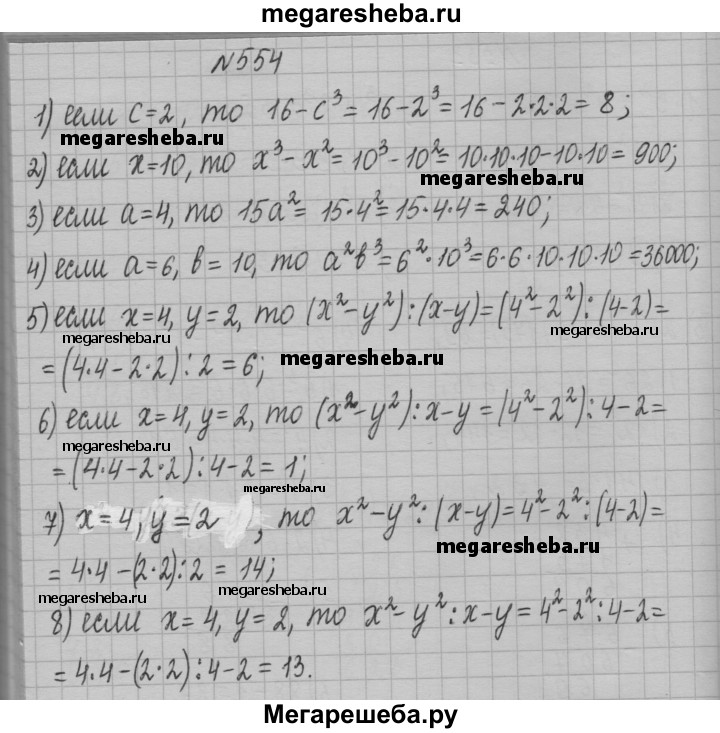 megaresheba.ru
№554
1) если c=2, то 16-c³=16-2³=16-2·2·2=8;
megaresheba.ru
2) если x=10, то x³-x²=10³-10²=10·10·10-10·10=900;
megaresheba.ru
3) если a=4, то 15a²=15·4²=15·4·4=240;
4) если a=6, b=10, то a²b³=6²·10³=6·6·10·10·10=36000;
5) если x=4, y=2, то (x²-y²):(x-y)=(4²-2²):(4-2)=
megaresheba.ru megaresheba.ru
=(4·4-2·2):2=6; megaresheba.ru
6) если x=4, y=2, то (x²-y²):x-y=(4²-2²):4-2=
megaresheba.ru megaresheba.ru
=(4·4-2·2):4-2=1;
megaresheba.ru
7) x=4, y=2, то x²-y²:(x-y)=4²-2²:(4-2)=
megaresheba.ru
=4·4-(2·2):2=14;
megaresheba.ru megaresheba.ru
8) если x=4, y=2, то x²-y²:x-y=4²-2²:4-2=
=4·4-(2·2):4-2=13.
Мегарешеба.ру